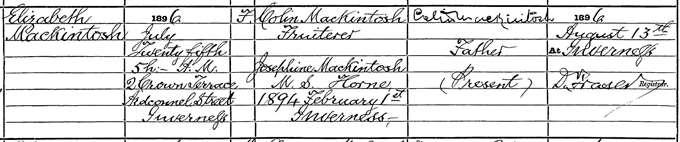 Elizabeth
Mackintosh
1896
July
Twenty fifth
5h.- A.M.
2 Crown Terrace
Ardconnel Street
Inverness
F
Colin Mackintosh
Fruiterer
Josephine Mackintosh
M.S. Horne
1894 February 1st
Inverness
Colin Mackintosh
Father
(Present)
1896
August 13th
At Inverness
D. Fraser
Registrar.